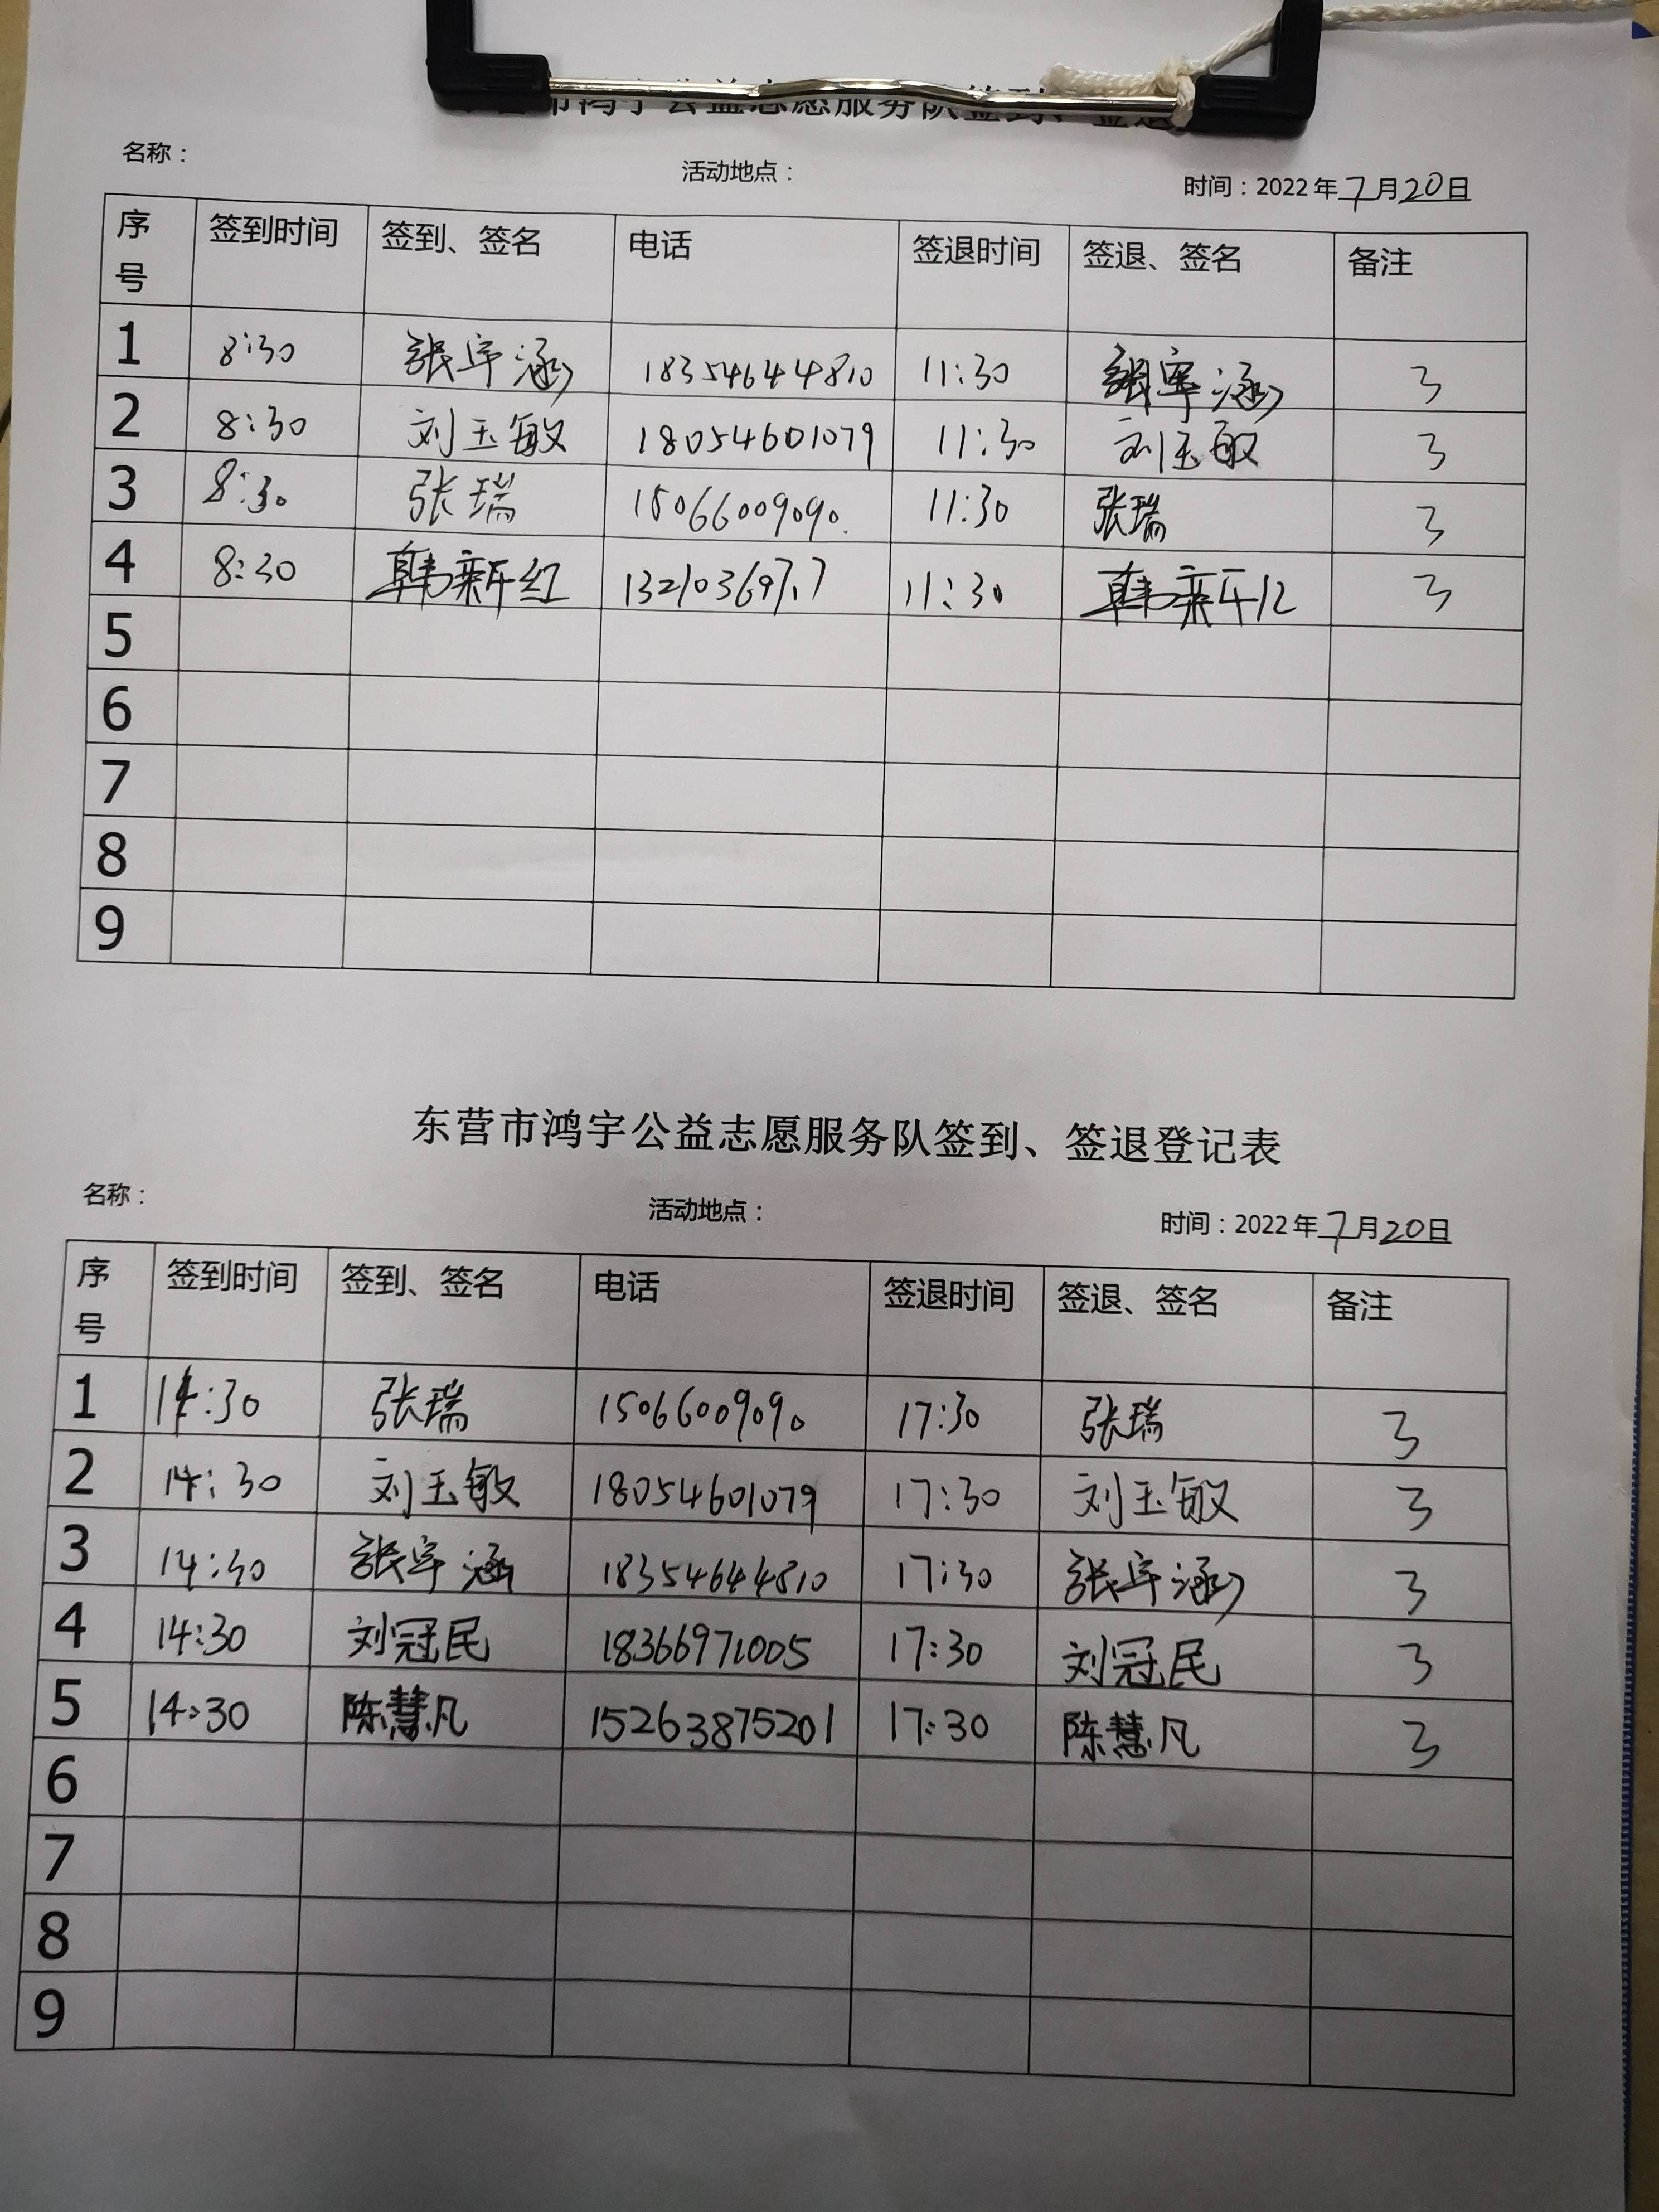 市鸿宇公益志愿服务队签到、签退
名称：
活动地点：
时间：2022年7月20日
序号 签到时间 签到、签名 电话 签退时间 签退、签名 备注
1 8:30 张宇涵 18354644810 11:30 张宇涵 3
2 8:30 刘玉敏 18054601079 11:30 刘玉敏 3
3 8:30 张瑞 15066009090 11:30 张瑞 3
4 8:30 11:30 3
5
6
7
8
9
东营市鸿宇公益志愿服务队签到、签退登记表
名称：
活动地点：
时间：2022年7月20日
序号 签到时间 签到、签名 电话 签退时间 签退、签名 备注
1 14:30 张瑞 15066009090 17:30 张瑞 3
2 14:30 刘玉敏 18054601079 17:30 刘玉敏 3
3 14:30 张宇涵 18354644810 17:30 张宇涵 3
4 14:30 刘冠民 18366971005 17:30 刘冠民 3
5 14:30 陈慧凡 15263875201 17:30 陈慧凡 3
6
7
8
9